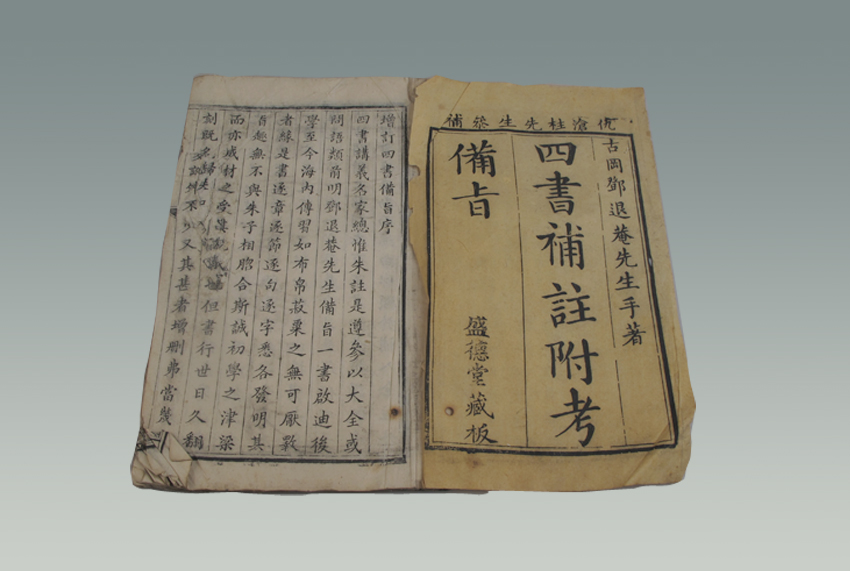 仇滄柱先生叅補
古岡鄧退菴先生手著
四書補註附考
備旨
盛德堂藏板
增訂四書備旨序
四書講義名家總惟朱註是遵參以大全或
問語類前明鄧退菴先生備旨一書啟迪後
學至今海內傳習如布帛菽粟之無可厭斁
者緣是書逐章逐節逐句逐字悉各發明其
旨趣無不與朱子相脗合斯誠初學之津梁
而亦成材之但書行世日久翻
刻既不少又其甚者增刪弗當幾